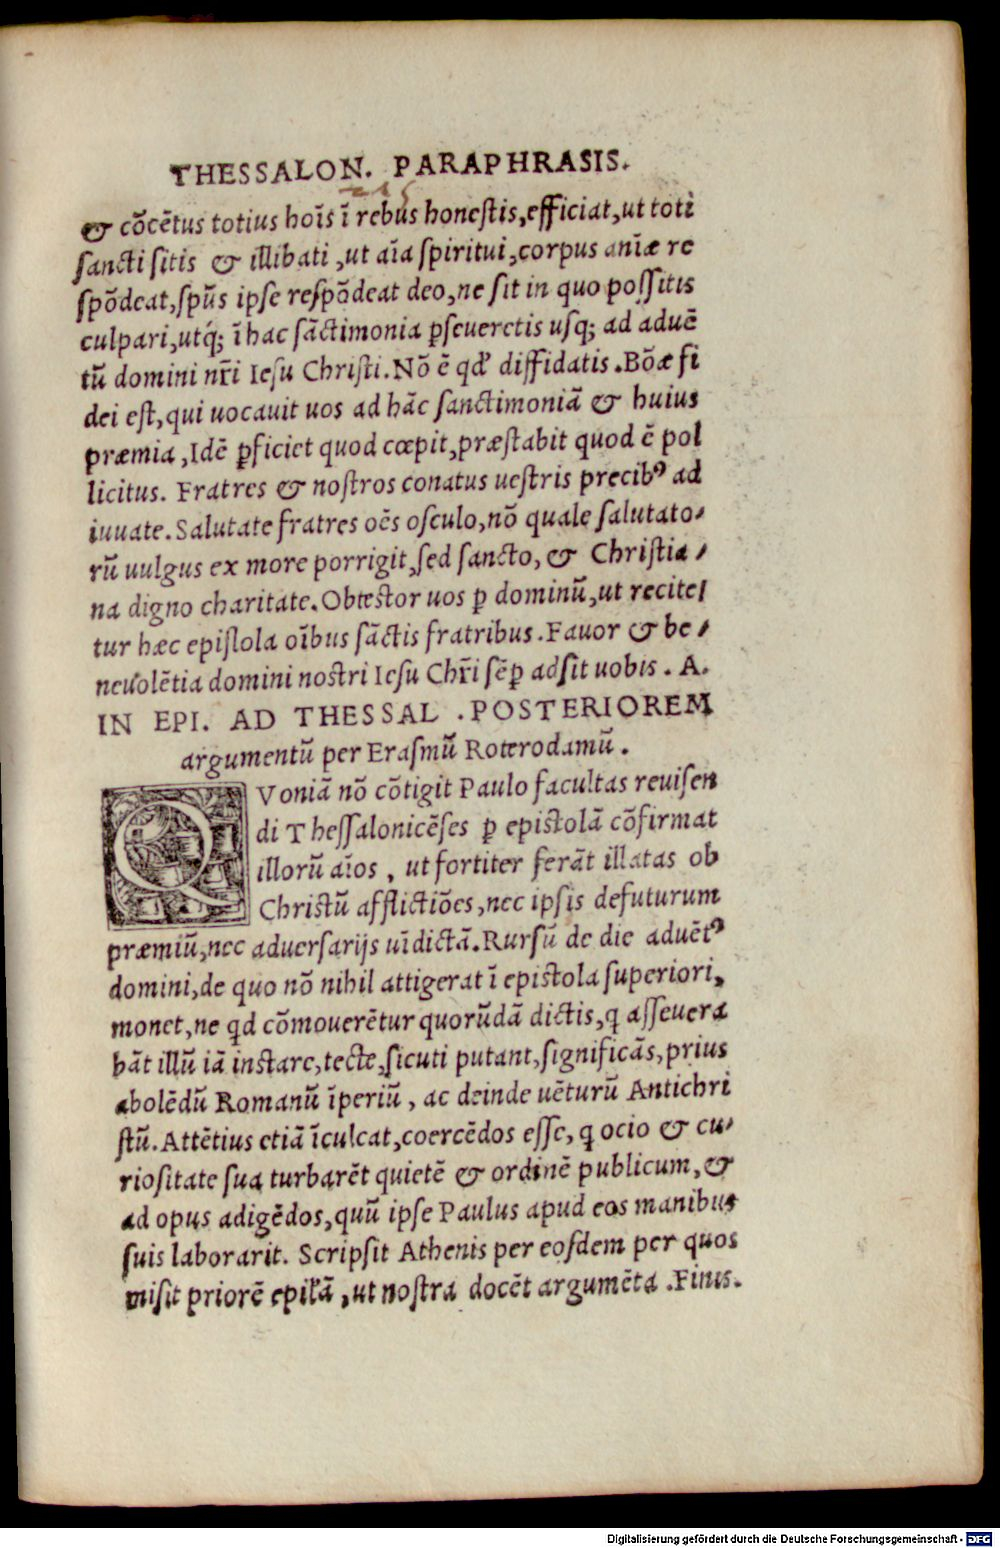 THESSALON. PARAPHRASIS.
& cōcētus totius hoīs ī rebus honeſtis,efficiat,ut toti
ſancti ſitis & illibati ,ut aīa ſpiritui,corpus aniæ re
ſpōdeat,ſpūs ipſe reſpōdeat deo,ne ſit in quo poſſitis
culpari,utq́; ī hac ſāctimonia ꝑſeueretis uſq; ad aduē
tū domini nr̄i Ieſu Chriſti.Nō ē qd' diffidatis .Bōæ fi
dei eſt,qui uocauit uos ad hāc ſanctimoniā & huius
præmia ,Idē ꝑficiet quod cœpit,præſtabit quod ē pol
licitus. Fratres & noſtros conatus ueſtris precibꝰ ad
iuuate.Salutate fratres oēs oſculo,nō quale ſalutato-
rū uulgus ex more porrigit,ſed ſancto, & Chriſtia-
na digno charitate.Obteſtor uos ꝑ dominū,ut recite/
tur hæc epiſlola oībus ſāctis fratribus .Fauor & be-
neuolētia domini noſtri Ieſu Chr̄i ſēꝑ adſit uobis . A.
IN EPI. AD THESSAL .POSTERIOREM
argumentū per Eraſmū Roterodamū .
QVoniā nō cōtigit Paulo facultas reuiſen
di Theſſalonicēſes ꝑ epistolā cōfirmat
illorū aīos , ut fortiter ferāt illatas ob
Christū afflictiōes,nec ipſis defuturum
præmiū,nec aduerſarijs uīdictā.Rurſū de die aduētꝰ
domini,de quo nō nihil attigerat ī epistola ſuperiori,
monet,ne qd cōmouerētur quorūdā dictis,q aſſeuera
bāt illū iā instare,tecte,ſicuti putant,ſignificās,prius
abolēdū Romanū īperiū , ac deinde uēturū Antichri
ſtū.Attētius etiā īculcat,coercēdos eſſe, q ocio & cu-
rioſitate ſua turbarēt quietē & ordinē publicum,&
ad opus adigēdos,quū ipſe Paulus apud eos manibus
ſuis laborarit. Scripſit Athenis per eoſdem per quos
miſit priorē epiłā ,ut noſtra docēt argumēta .Finis.
Digitalisierung gefördert durch die Deutsche Forschungsgemeinschaft - DFG